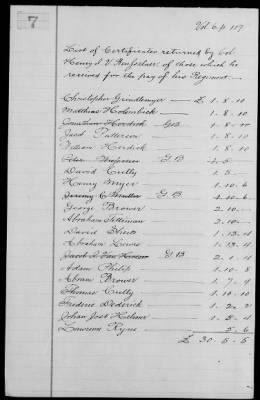 7
Vol 6 p 117
List of Certificates returned by Col.
Henry I. V. Rensselaer, of those which he
received for the pay of his Regiment.
Christopher Grindlemyer — £ 1 . 8 . 10
Matthias Holenbick — 1 . 8 . 10
Jonathan Hordick — 1 . 8 . 10
Jacob Patterson 1 . 8 . 10
William Herdick — 1 . 8 . 10
G B 1 . 5 -
David Cully — 1 . 5 -
Henry Myer — 1 . 10 . 6
Jeremy C. Muller G. B 1 . 10 . 6
George Brower — 2 . 10 .
Abraham — 2 . 10 -
David — 1 . 13 . 4
Abraham — 1 . 13 . 4
Jacob I. Van G. B 2 . 1 . 4
Adam Philip — 1 . 10 . 8
Abram Brower — 1 . 7 . 4
Thomas Cully — 1 . 10 . 10
Frederic Dederick — 1 . 2 .
Johan Jost 1 . 2 . 4
Lawrence Ryne — 5 . 6
£ 30 . 5 . 5